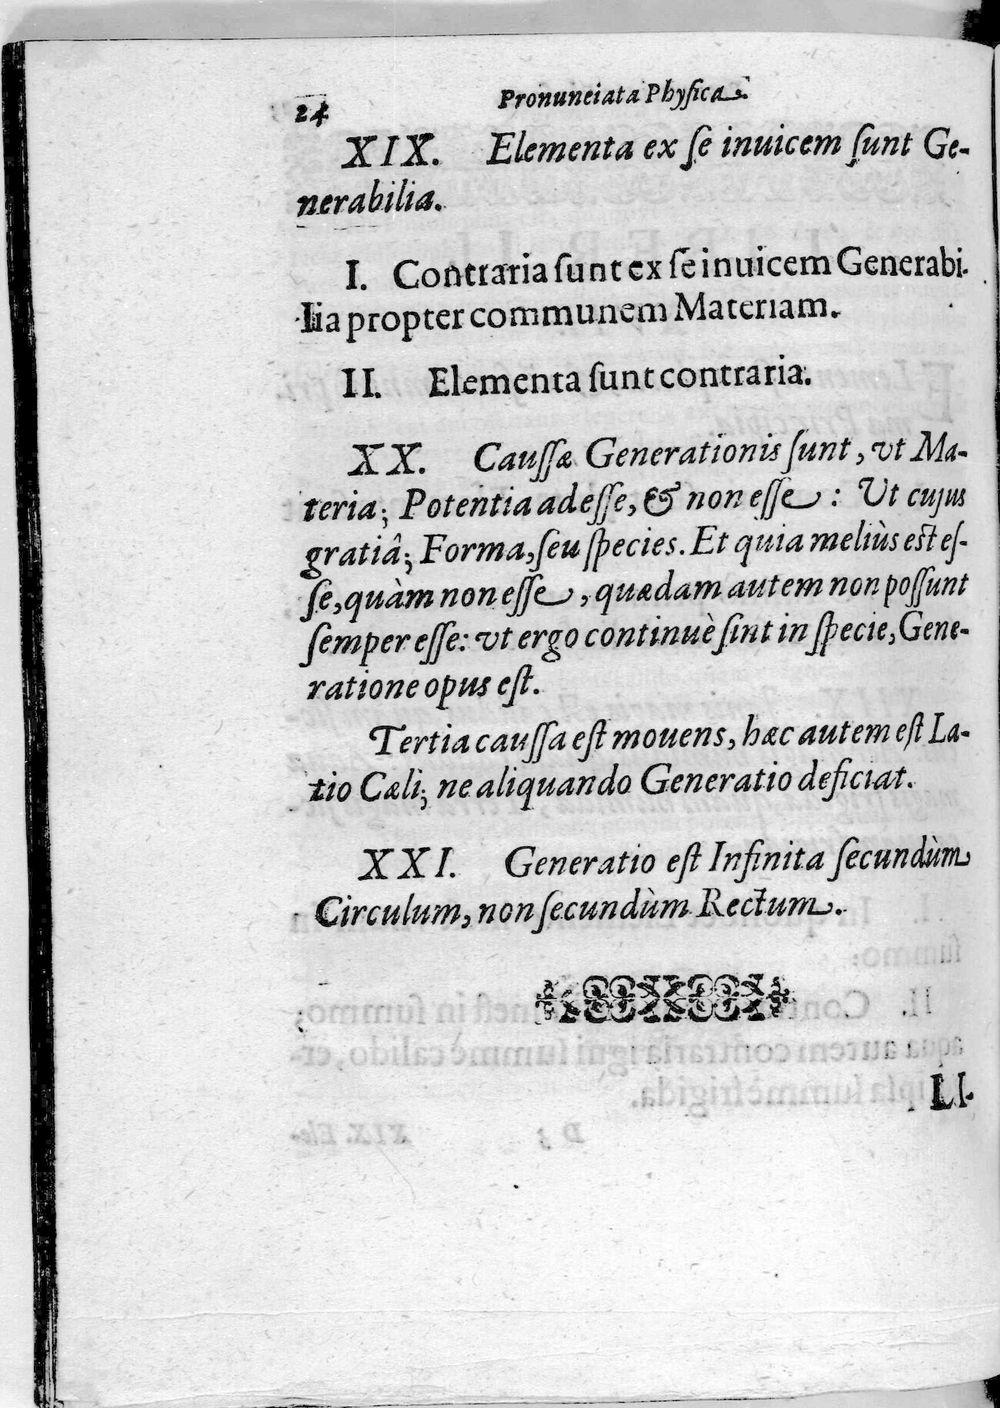 24 Pronunciata Physica.
XIX. Elementa ex ſe inuicem ſunt Ge-
nerabilia.
I. Contraria ſunt ex ſe inuicem Generabi-
lia propter communem Materiam.
II. Elementa ſunt contraria.
XX. Cauſſæ Generationis ſunt, vt Ma-
teria; Potentia adeſſe, & non eſſe: Ut cujus
gratiâ; Forma, ſeu ſpecies. Et quia meliùs eſt eſ-
ſe, quàm non eſſe, quædam autem non poſſunt
ſemper eſſe: vt ergo continuè ſint in ſpecie, Gene-
ratione opus eſt.
Tertia cauſſa eſt mouens, hæc autem eſt La-
tio Cæli; ne aliquando Generatio deficiat.
XXI. Generatio eſt Infinita ſecundùm
Circulum, non ſecundùm Rectum.
LI-